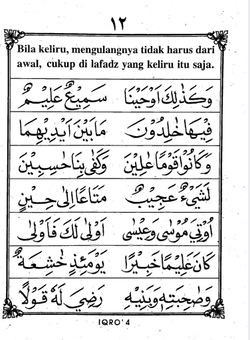 ١٢
Bila keliru, mengulangnya tidak harus dari
awal, cukup di lafadz yang keliru itu saja.
وَكَذٰلِكَ اَوْحَيْنَا سَمِيْعٌ عَلِيْمٌ
فِيْهَا خٰلِدُوْنَ مَا بَيْنَ اَيْدِيْهِمَا
وَكَانُوْا قَوْمًا عٰلِيْنَ وَكَفٰى بِنَا حٰسِبِيْنَ
لَشَيْءٌ عَجِيْبٌ مَتَاعًا اِلٰى حِيْنٍ
اُوْتِيَ مُوْسٰى وَعِيْسٰى اَوْلٰى لَكَ فَاَوْلٰى
كَانَ عَلِيْمًا خَبِيْرًا يَوْمَئِذٍ خٰشِعَةٌ
وَصَاحِبَتِهٖ وَبَنِيْهِ رَضِيَ لَهٗ قَوْلًا
IQRO' 4